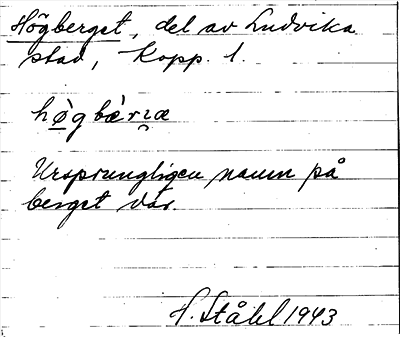 Högberget, del av Ludvika
stad, Kopp. l.
Ursprungligen namn på
berget där.
H. Ståhl 1943